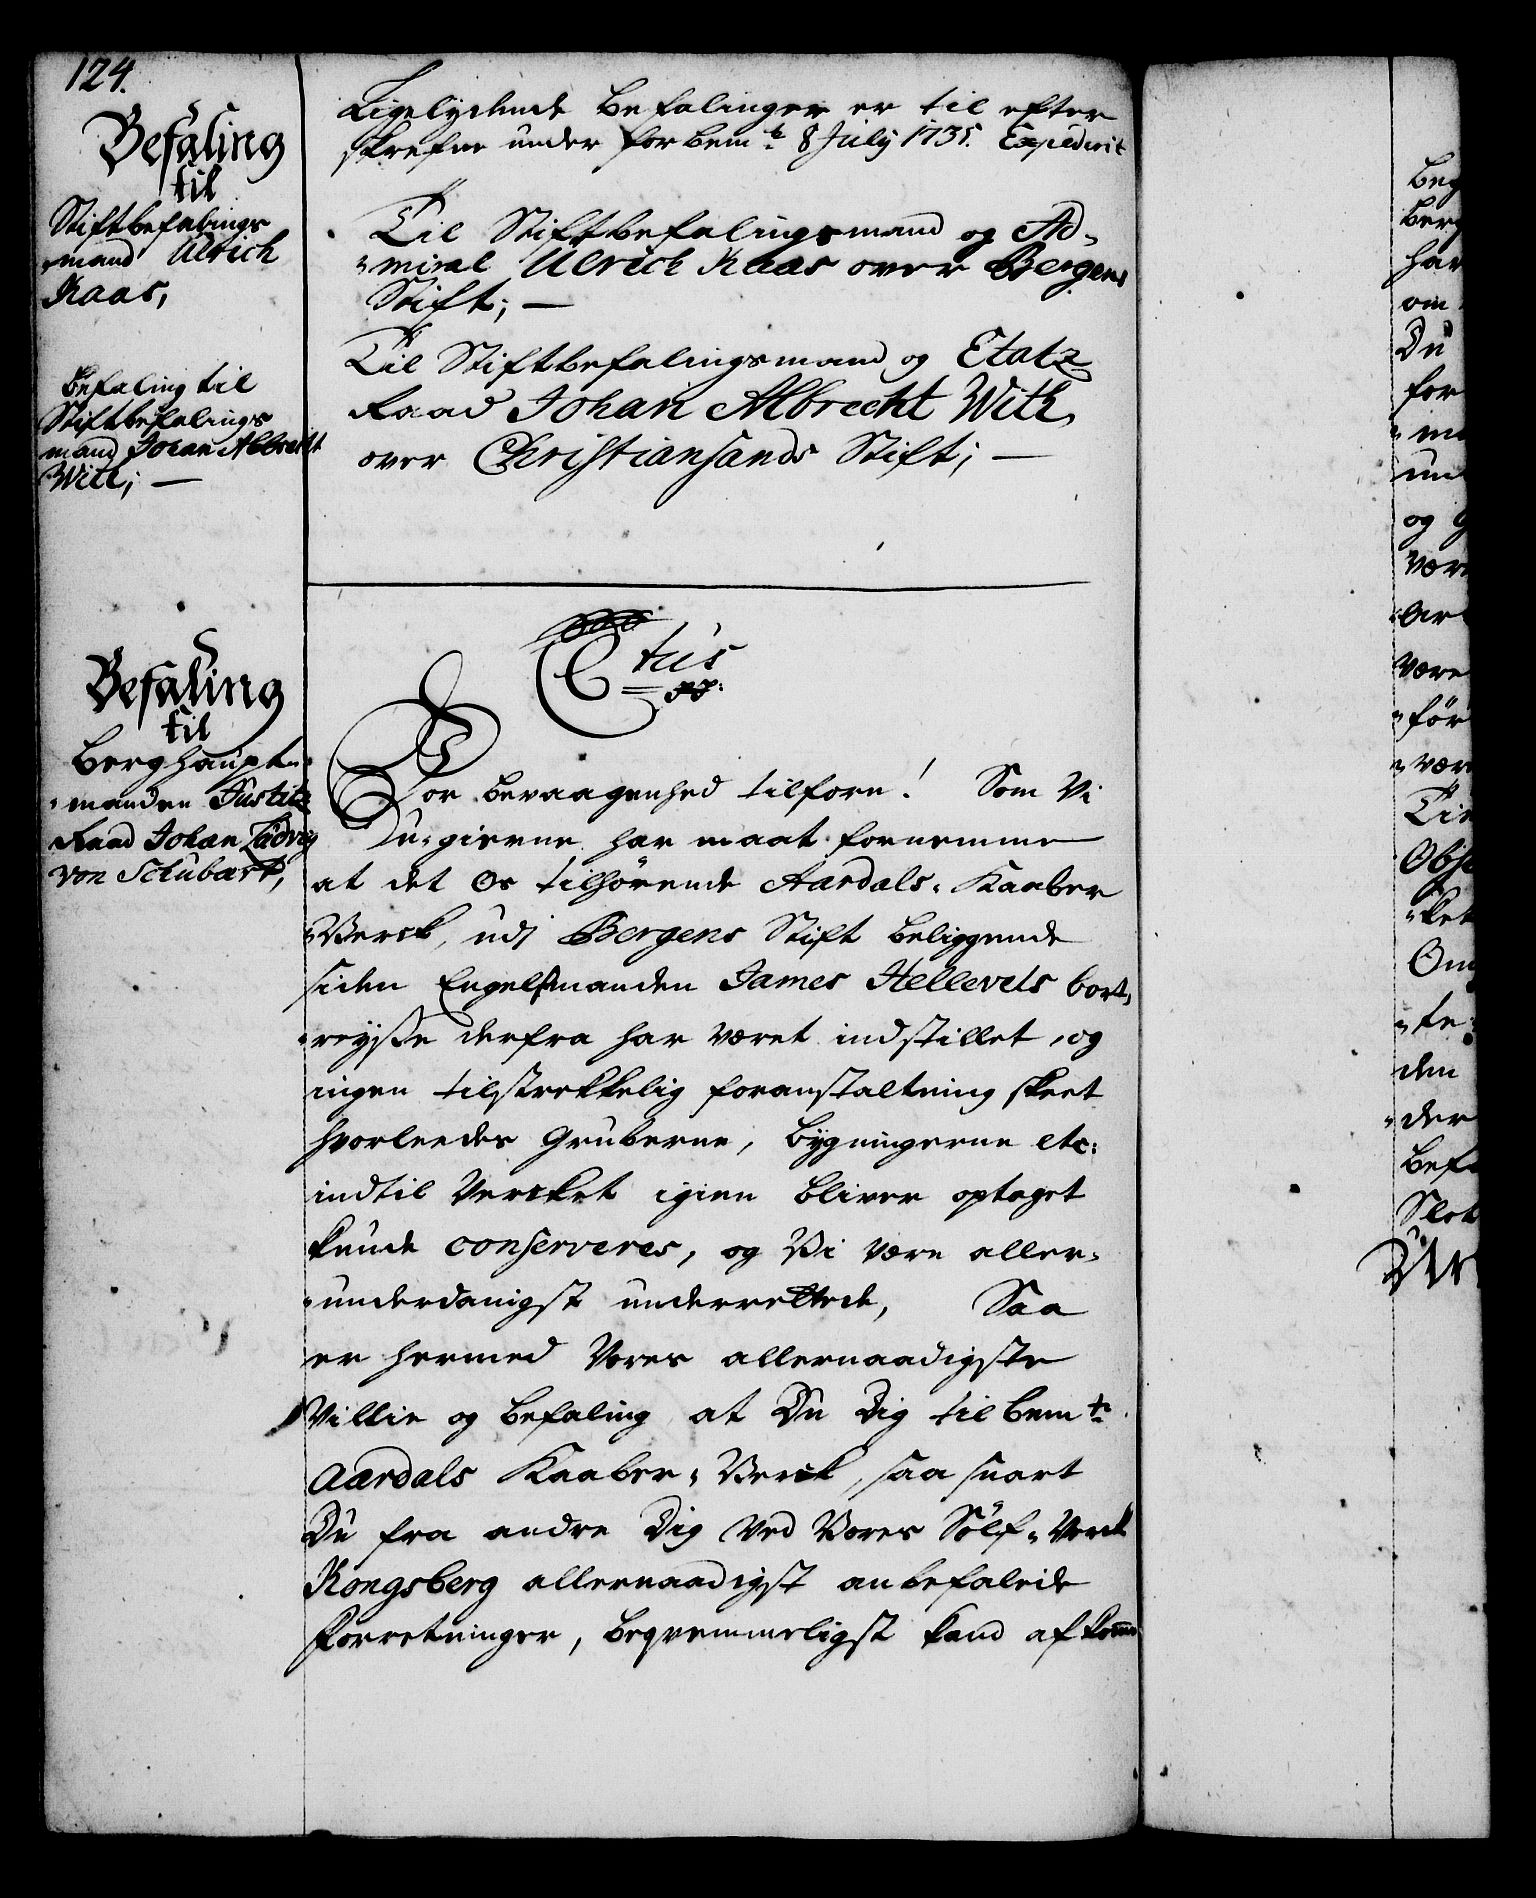 124.
Befaling
til
Stiftbefalings
mand Ulrich
Kaas,
Befaling til
Stiftbefalings
mand Johan Albrecht
With; —
Befaling
til
Berghaupt-
manden Justitz
Raad Johan Ludvig
von Schubart,
Ligelydende Befalinger er til efter
skrefne under forbemte 8 July 1735. Expederit
Til Stiftbefalingsmand og Ad-
miral Ulrich Kaas over Bergens
Stift; —
Til Stiftbefalingsmand og Etatz
Raad Johan Albrecht With,
over Christiansands Stift; —
Ctus
pp:
Vor bevaagenhed tilforn! Som Vi
Du-gierne har maat fornemme
at det Os tilhørende Aardals-Kaaber
Verck, udj Bergens Stift beliggende
siden Engelsmanden James Hellevels bort-
reyse derfra har været indstillet, og
ingen tilstrekkelig foranstaltning skeet
hvorleedes Gruberne, bygningerne etc:
indtil Vercket igien bliver optaget
kunde conserveres, og Vi være aller-
underdanigst underrettede, Saa
er hermed Vores allernaadigste
Villie og befaling at Du Dig til bemte
Aardals Kaaber-Verck, saa snart
Du fra andre Dig ved Vores Sølf-Verck
Kongsberg allernaadigst anbefalede
forretninger, beqvemmeligst kand afkomme
Beg
Berg
har
om
Du
for
me
und
og G
vær
Ar
være
før
vær
Til
Obse
ket
Om
te
den
der
Befa
Slot